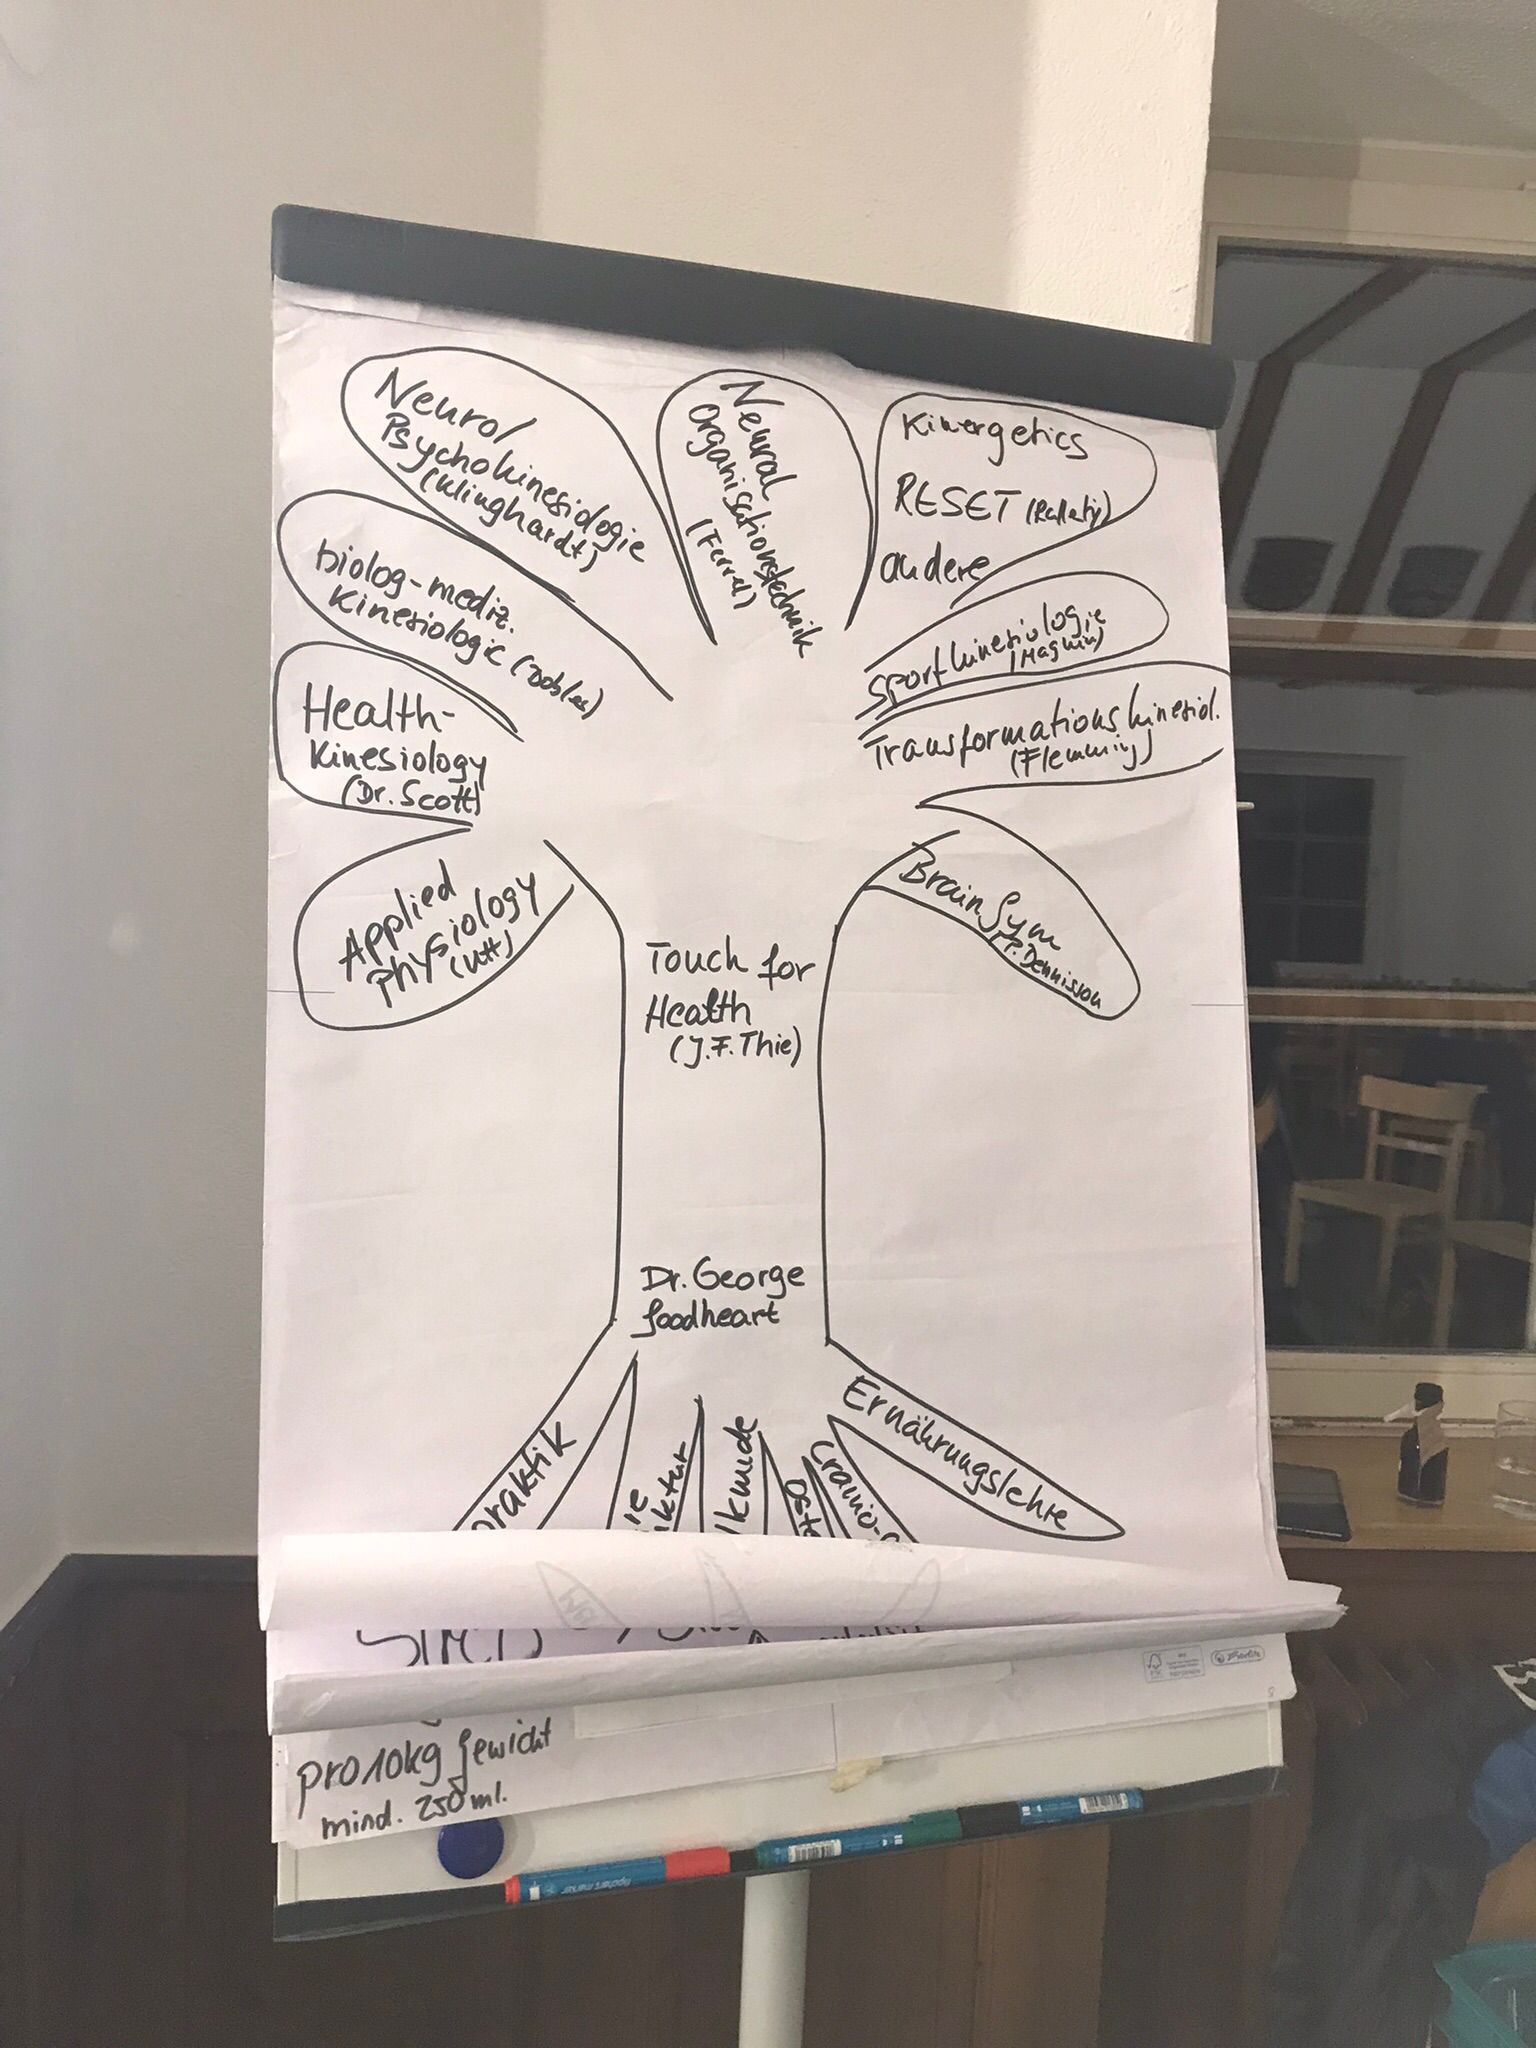 Neural
Organisationstechnik
(Ferrel)
Kinergetics
RESET (Rafferty)
andere
Neurol
Psychokinesiologie
(Klinghardt)
biolog-mediz.
Kinesiologie
Sportkinesiologie
Health-
Kinesiology
(Dr. Scott)
Transformationskinesiol.
(Flemming)
Applied
Physiology
(Utt)
Brain Gym
Dr. Dennisson
Touch for
Health
(J.F. Thie)
Dr. George
Goodheart
praktik
ie
ktur
lkunde
Ost
Cranio-
Ernährungslehre
Stress
pro 10kg Gewicht
mind. 250 ml.